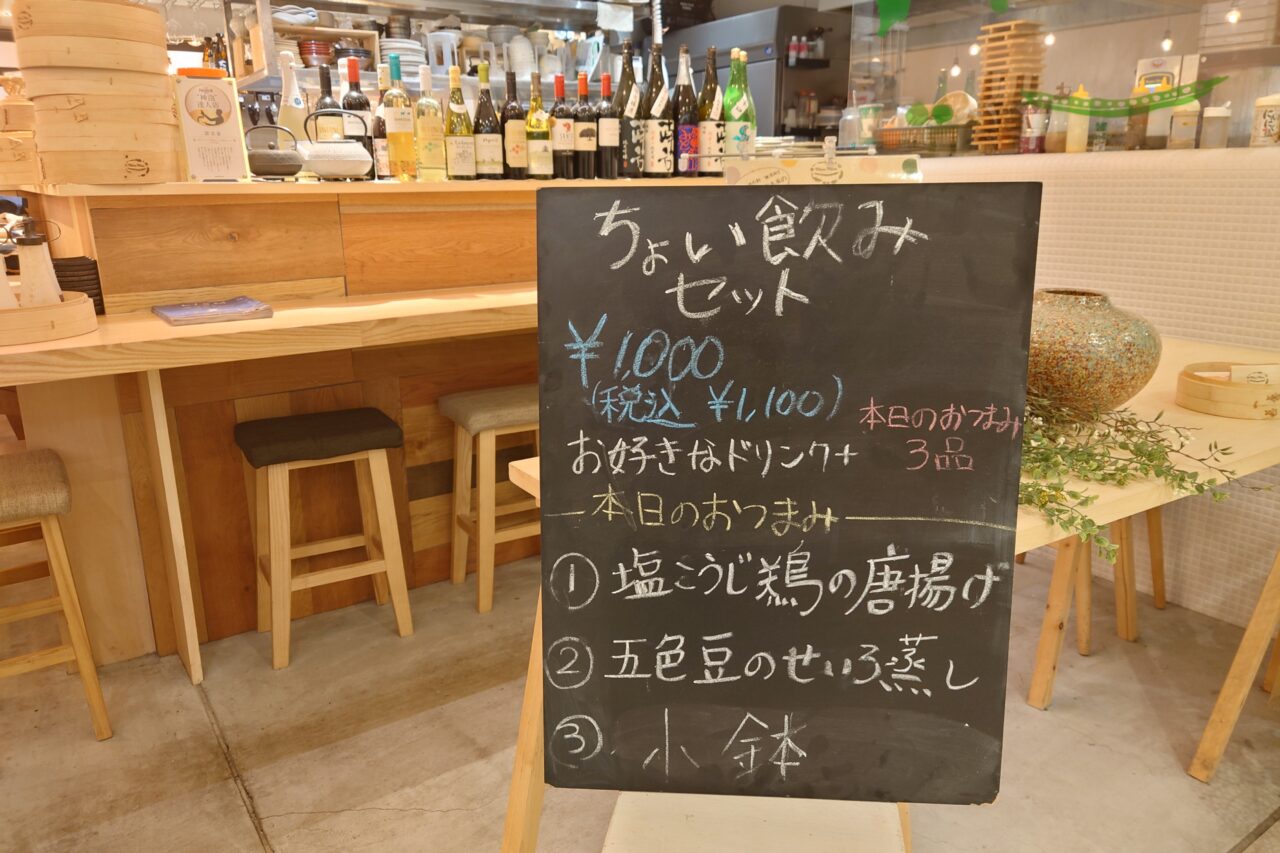 ちょい飲み
セット
¥1,000
(税込 ¥1,100)
お好きなドリンク+
本日のおつまみ
3品
本日のおつまみ
① 塩こうじ鶏の唐揚げ
② 五色豆のせいろ蒸し
③ 小鉢